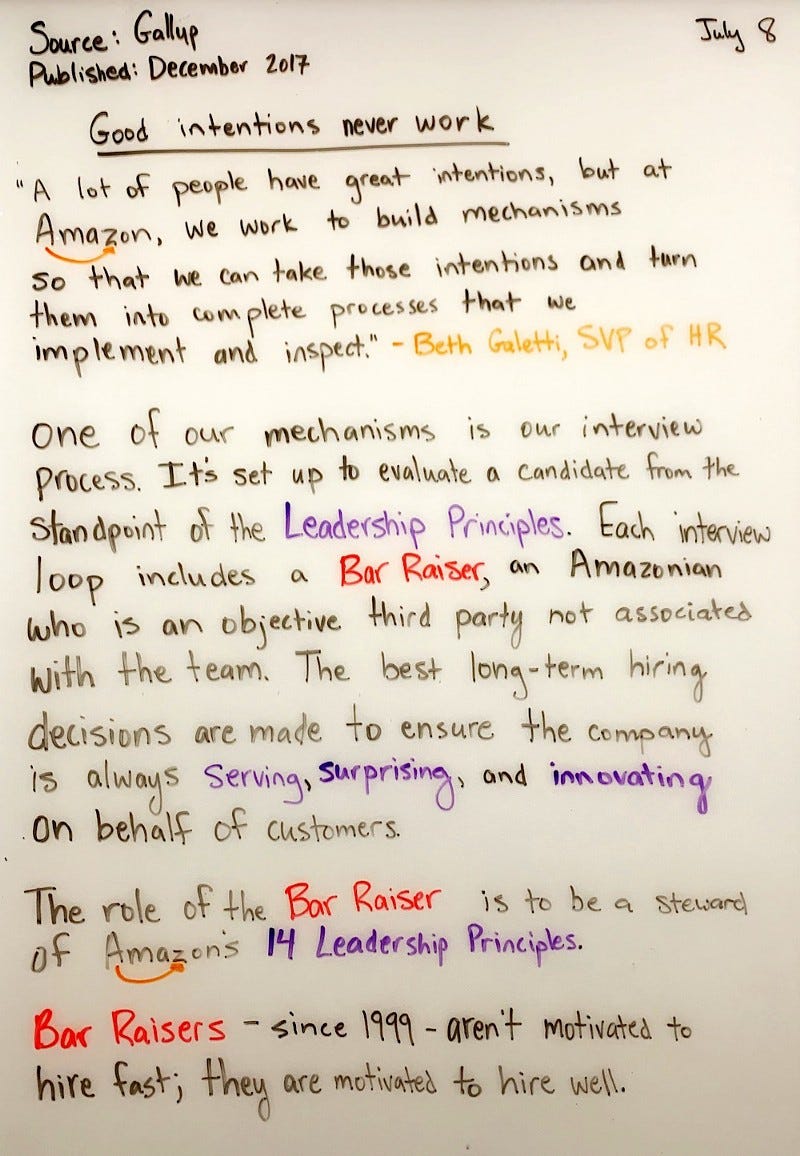 Source: Gallup
July 8
Published: December 2017
Good intentions never work
"A lot of people have great intentions, but at
Amazon, we work to build mechanisms
so that we can take those intentions and turn
them into complete processes that we
implement and inspect." - Beth Galetti, SVP of HR
One of our mechanisms is our interview
process. It's set up to evaluate a candidate from the
standpoint of the Leadership Principles. Each interview
loop includes a Bar Raiser, an Amazonian
who is an objective third party not associated
with the team. The best long-term hiring
decisions are made to ensure the company
is always serving, surprising, and innovating
on behalf of customers.
The role of the Bar Raiser is to be a steward
of Amazon's 14 Leadership Principles.
Bar Raisers - since 1999 - aren't motivated to
hire fast; they are motivated to hire well.